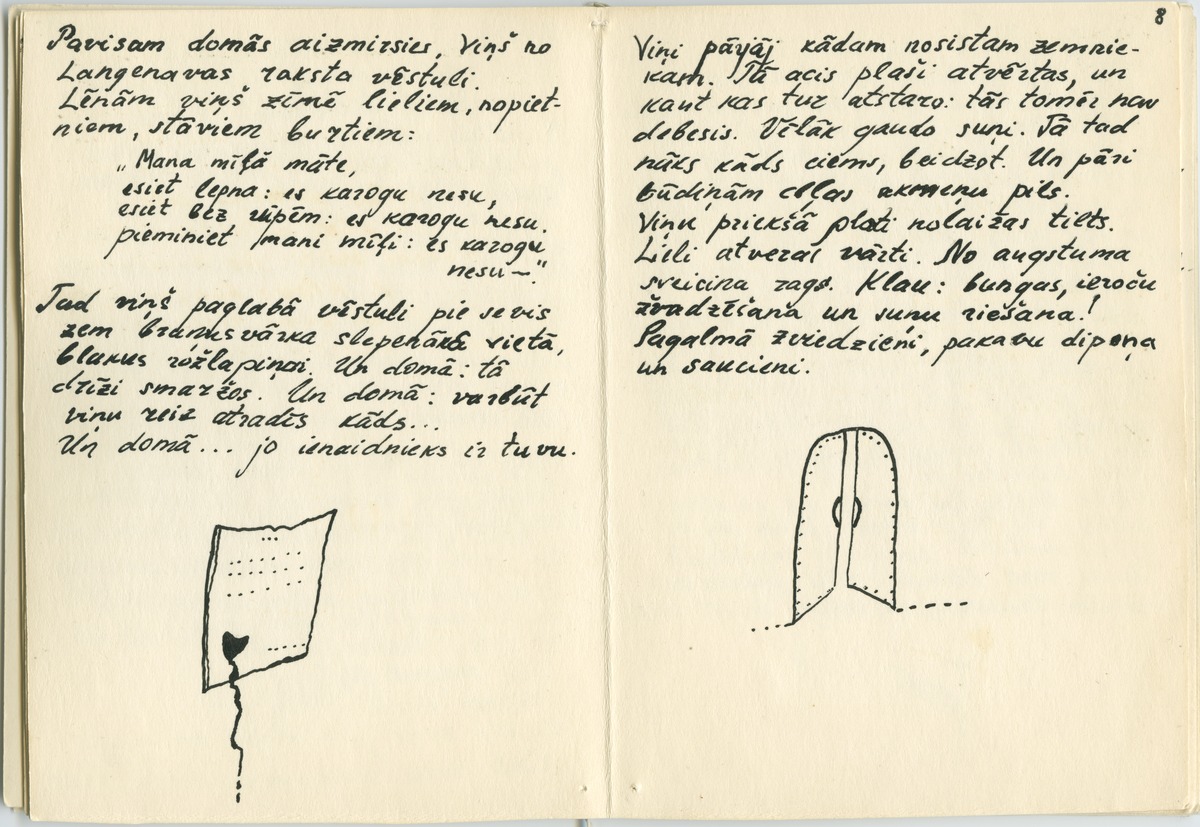 Pavisam domās aizmirsies, viņš no
Langenavas raksta vēstuli.
Lēnām viņš zīmē lieliem, nopiet-
niem, stāviem burtiem:
„Mana mīļā māte,
esiet lepna: es karogu nesu,
esiet bez rūpēm: es karogu nesu.
pieminiet mani mīļi: es karogu
nesu—"
Tad viņš paglabā vēstuli pie sevis
zem bruņusvārka slepenākā vietā,
blakus rožlapiņai. Un domā: tā
drīzi smaržos. Un domā: varbūt
viņu reiz atradīs kāds...
Un domā... jo ienaidnieks ir tuvu.
8
Viņi pārjāj kādam nosistam zemnie-
kam. Tā acis plaši atvērtas, un
kaut kas tur atstaro: tās tomēr nav
debesis. Vēlāk gaudo suņi. Tā tad
nāks kāds ciems, beidzot. Un pāri
būdiņām ceļas akmeņu pils.
Viņu priekšā plati nolaižas tilts.
Lieli atveras vārti. No augstuma
sveicina rags. Klau: bungas, ieroču
žvadzēšana un suņu riešana!
Pagalmā zviedzieni, pakavu dipoņa
un saucieni.